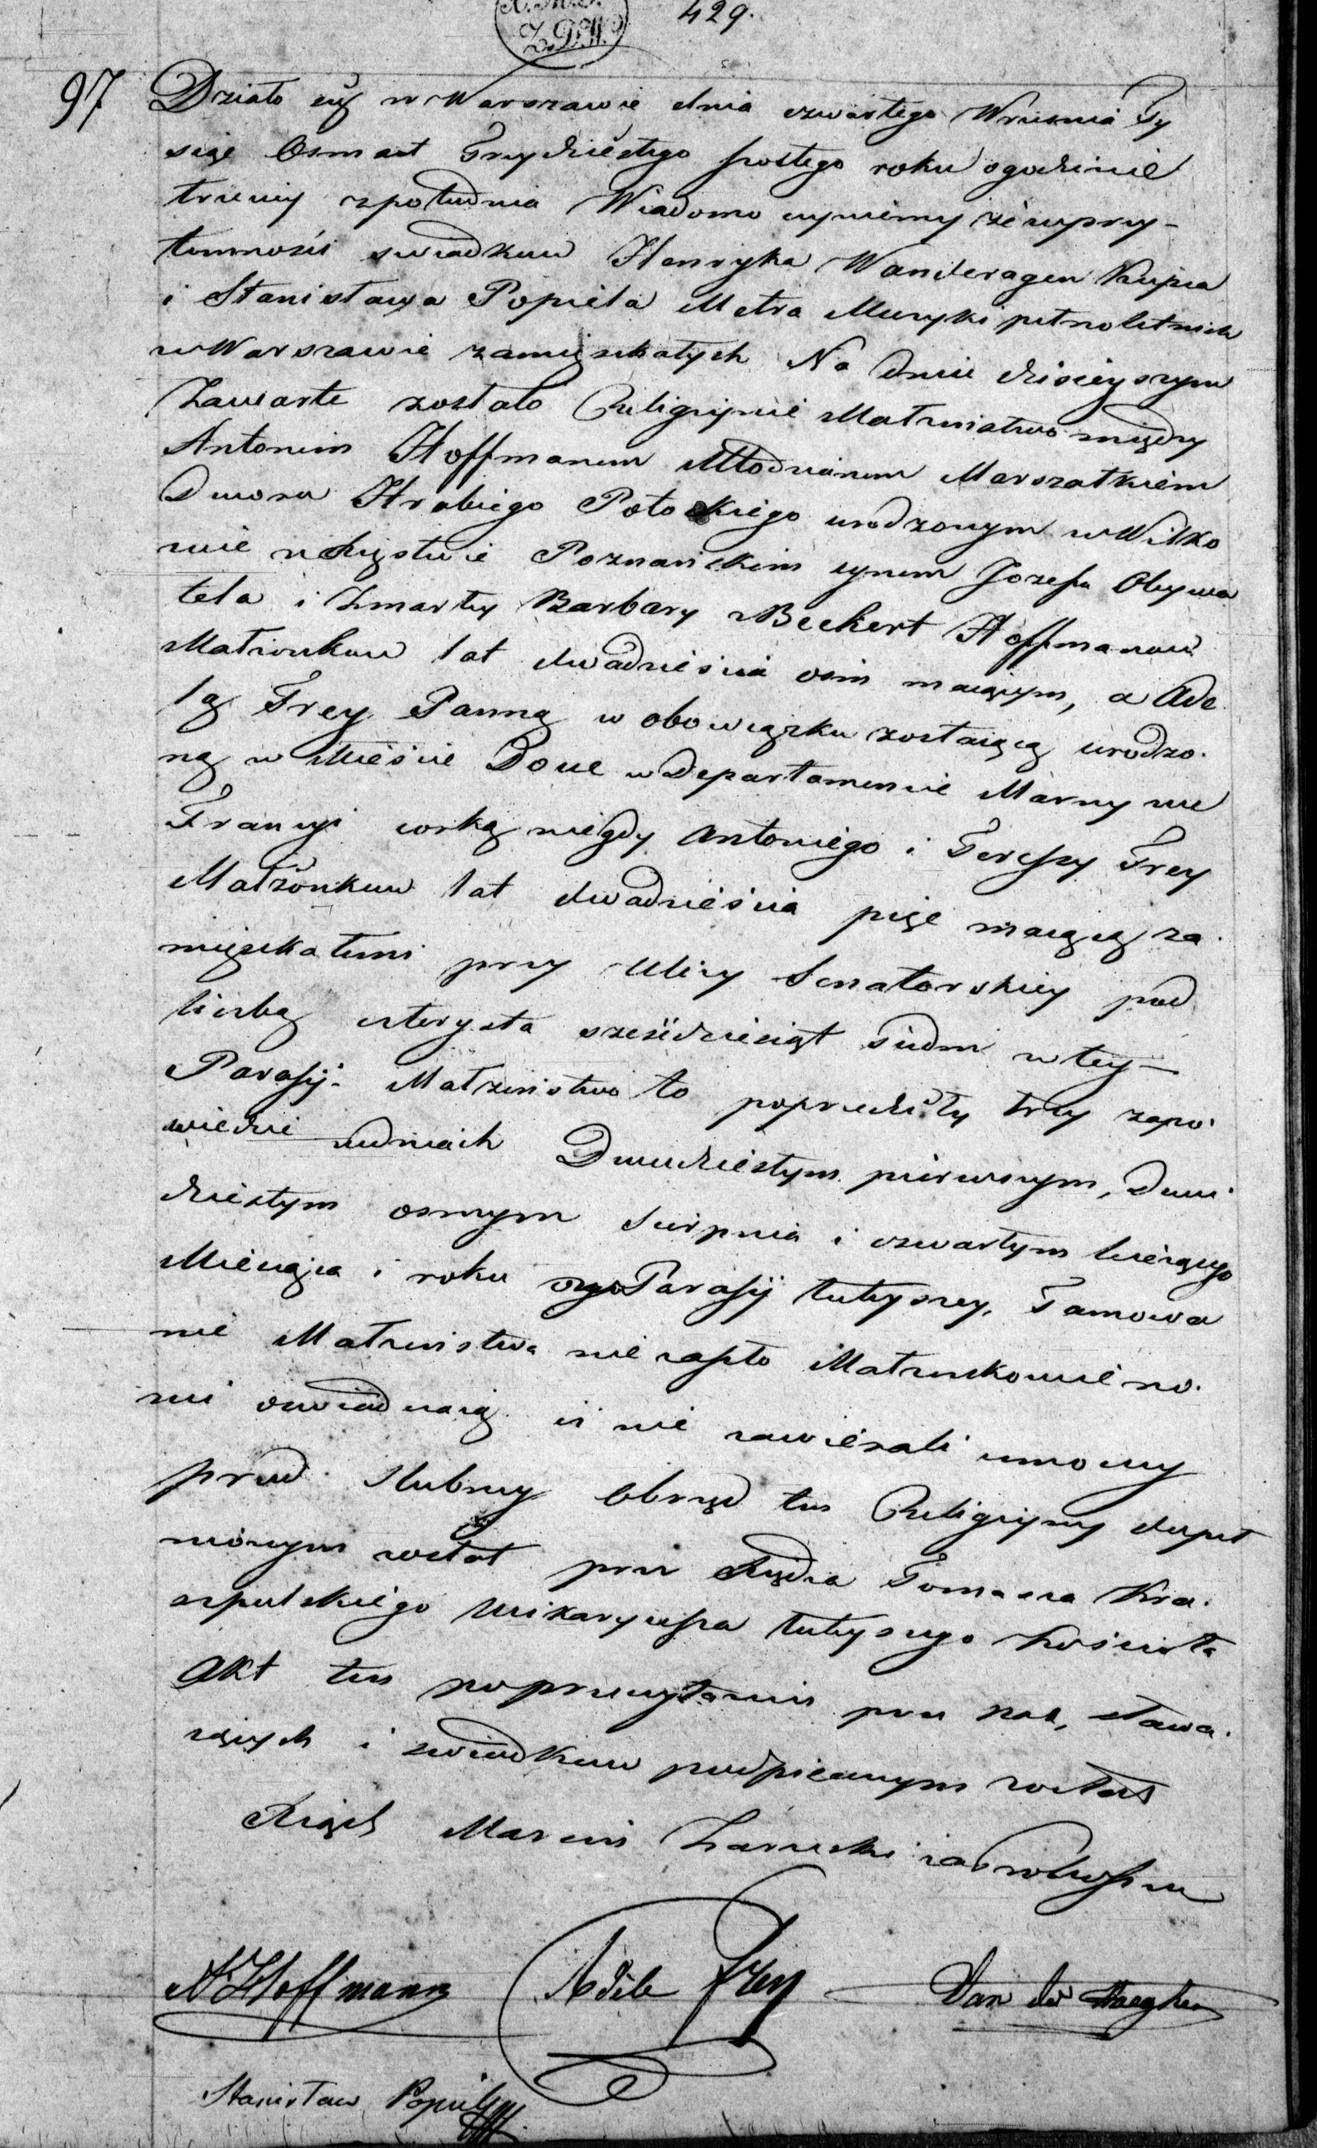 429.
Z.D.W.
97 Działo się w Warszawie dnia czwartego Wrzesnia Ty
siąc Osmset Trzydziestego szostego roku o godzinie
trzeciej z południa Wiadomo czyniemy że w przy-
tomności swiadkow Henryka Wanderagen Kupca
i Stanisława Popiela Metra Muzyki pełnoletnich
w Warszawie zamięszkałych Na dniu dzisieyszym
Zawarte zostało Religijnie Małżeństwo między
Antonim Hoffmanem Młodzianem Marszałkiem
Dworu Hrabiego Potockiego urodzonym w Wilko
wie w Xięstwie Poznańskim synem Jozefa Obywa
tela i Zmarłej Barbary z Beckert Hoffmanow
Małżonkow lat dwadzieścia osm maiącym, a Ade
lą Frey Panną w obowiązku zostaiącą urodzo-
ną w Mieście Doue w Departamencie Marny we
Francyi corką niegdy Antoniego i Teressy Frey
Małżonkow lat dwadzieścia pięc maiącą za-
mięszkałemi przy Ulicy Senatorskiey pod
liczbą czterysta sześćdziesiąt siedm w tey
Parafij- Małżeństwo to poprzedziły trzy zapo-
wiedzie w dniach Dwudziestym pierwszym, Dwu-
dziestym osmym Sierpnia i czwartym bieżącego
Miesiąca i roku Parafij tuteyszey. Tamowa
nie Małżeństwa nie zaszło Małżonkowie no-
wi oswiadczaią iż nie zawierali umowy
przed slubney Obrzęd ten Religijny dopeł
nionym został przez Xiędza Tomasza Kra-
szpulskiego Wikaryusza tuteyszego kościoła
Akt ten po przeczytaniu przez nas, stawa-
iących i swiadkow podpisanym został
Xiądz Marcin
A Hoffmann Adèle Frey Van de Haeghen
Stanisław Popiel